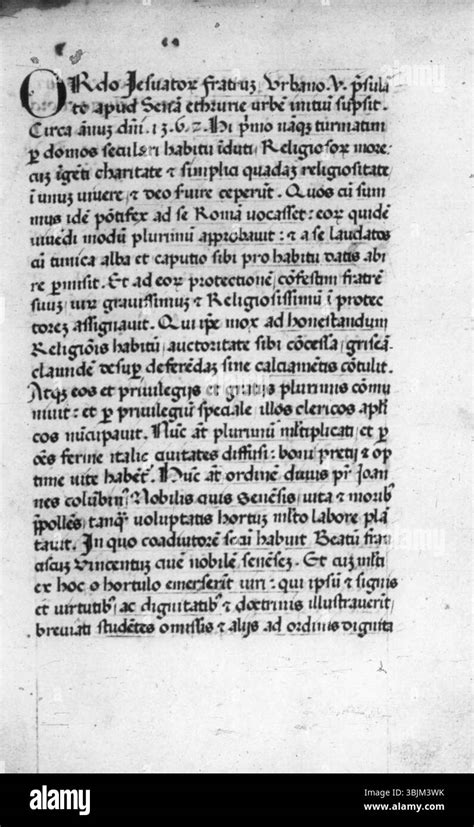 ORdo Jesuatoꝝ fratrūz Urbano. V. p̄sula
to apud Senā ethrurie urbē initiū sūpsit.
Circa annū dm̄i. 1367. Hi p̄mo nāqꝫ turmatim
ꝑ domos seculari habitu īduti, Religiosoꝝ more:
cuꝫ īgēti charitate ⁊ simplici quadaꝫ religiositate
ī unuꝫ vivere, ⁊ deo fuire ceperūt. Quos cū sum
mus idē pōtifex ad se Romā vocasset: eoꝝ quidē
vivēdi modū plurimū approbavit: ⁊ a se laudatos
cū tunica alba et caputio sibi pro habitu datis abi
re ꝑmisit. Et ad eoꝝ protectionē, cōfestim fratrē
suuꝫ, viꝝ gravissimuꝫ ⁊ Religiosissimū ī protec
toreꝫ assignavit. Qui ip̄e mox ad honestandum
Religiōis habitū, auctoritate sibi cōcessa, griseā
clamidē desuꝑ deferēdaꝫ sine calciamētis cōtulit.
Atqꝫ eos et privilegijs et gratijs plurimis cōmu
nivit: et ꝑ privilegiū speciale, illos clericos apl̄i
cos nūcupavit. Nūc āt plurimū ml̄tiplicati, et ꝑ
oēs ferme italie civitates diffusi: boni pretij ⁊ op
time vite habēt. Hūc āt ordinē divus pr̄ Joan
nes colūbinꝰ, Nobilis civis Senēsis, vita ⁊ moribꝰ
īpollēs, tanqꝫ voluptatis hortuꝫ ml̄to labore plā
tavit. In quo coadiutorē secū habuit Beatū fran
ciscuꝫ Vincentiuꝫ civē nobilē senēseꝫ. Et cuꝫ ml̄ti
ex hoc hortulo emerserīt viri: qui ipsū ⁊ signis
et virtutibꝰ, ac dignitatibꝰ ⁊ doctrinis illustraverīt,
breviati studētes omissis ⁊ alijs ad ordinis dignita
alamy
Image ID: 3BJM3WK
www.alamy.com